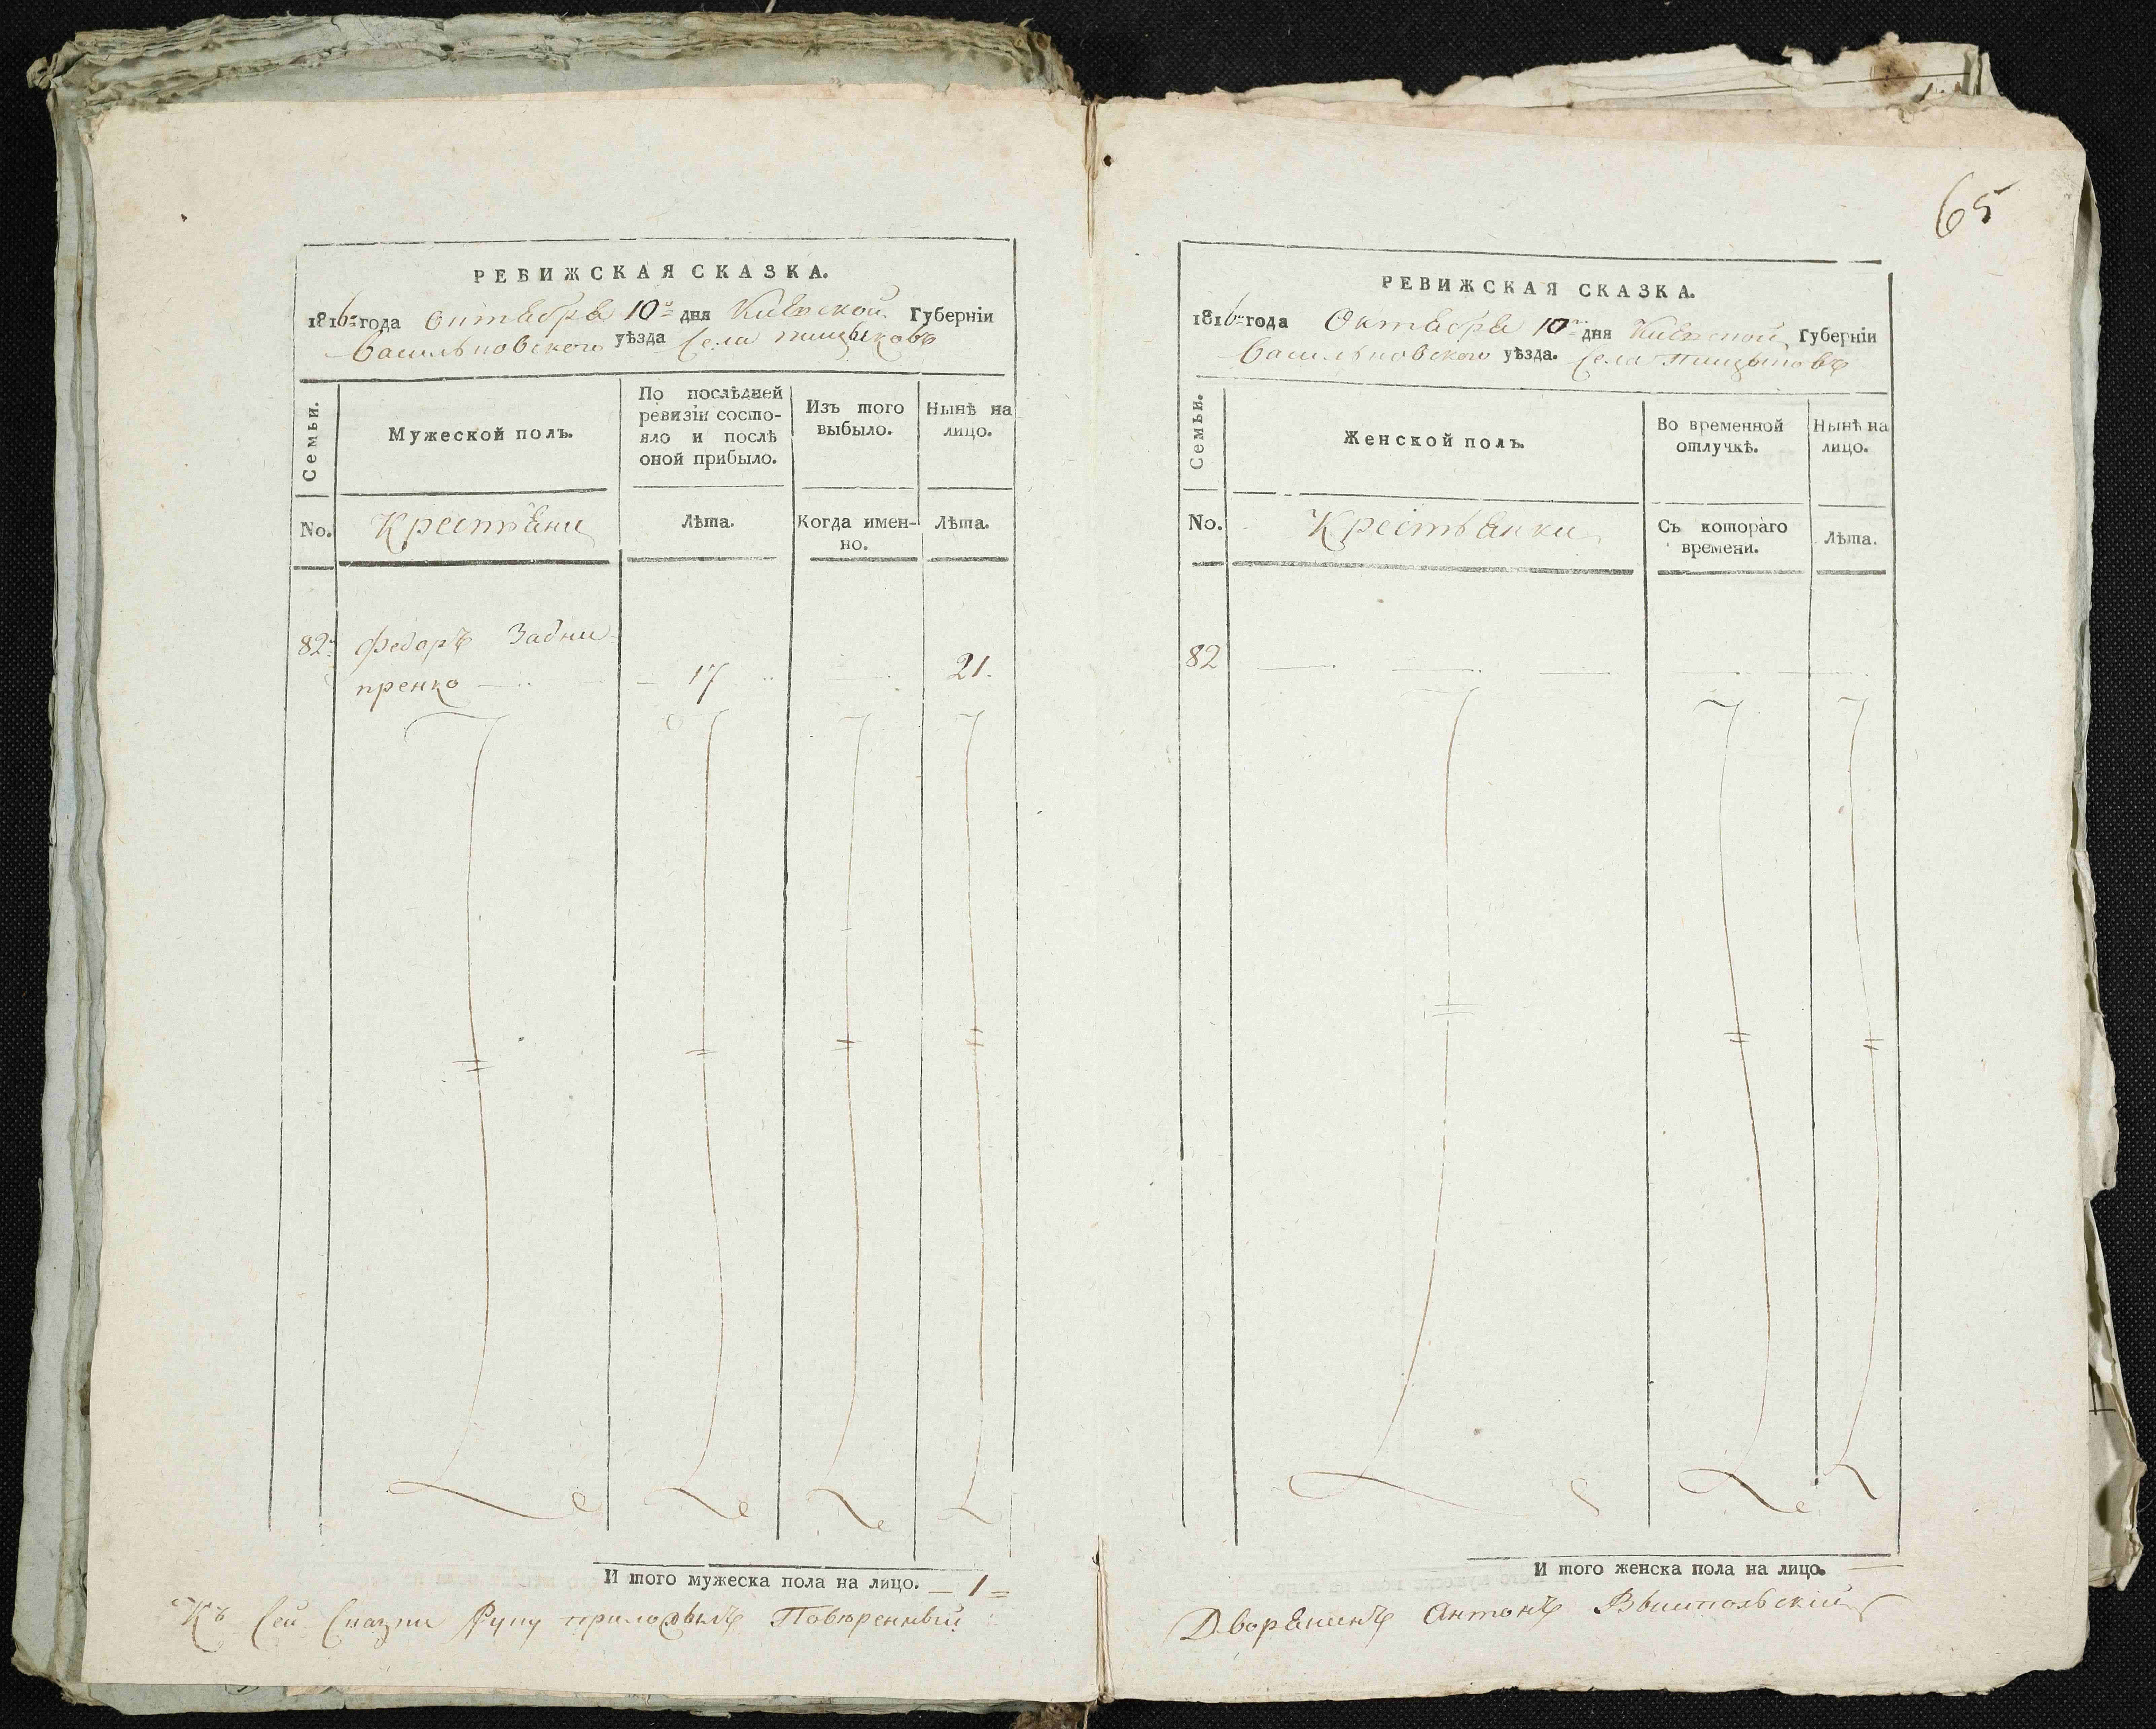 65
РЕВИЖСКАЯ СКАЗКА.
1816 года Октября 10 дня Кіевской Губерніи
Васильковского уѣзда Села пищыковъ
Семьи.
Мужеской полъ.
По послѣдней ревизіи состояло и послѣ оной прибыло.
Изъ того выбыло.
Нынѣ на лицо.
No.
Крестьяни
Лѣта.
Когда именно.
Лѣта.
82
Федоръ Задни
пренко
17
21.
И того мужеска пола на лицо. 1
Къ Сей Сказки Руку приложилъ Повѣренный
РЕВИЖСКАЯ СКАЗКА.
1816 года Октября 10 дня Кіевской Губерніи
Васильковского уѣзда. Села пищыковъ
Семьи.
Женской полъ.
Во временной отлучкѣ.
Нынѣ на лицо.
No.
Крестьянки
Съ котораго времени.
Лѣта.
82
И того женска пола на лицо.
Дворянинъ Антонъ